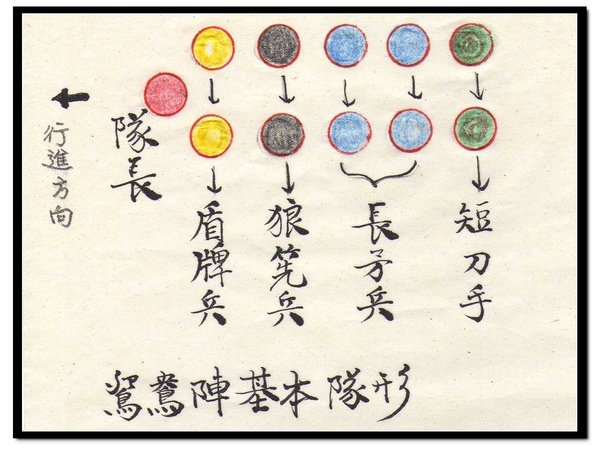 行進方向
隊長
盾牌兵
狼筅兵
長矛兵
短刀手
鴛鴦陣基本隊形